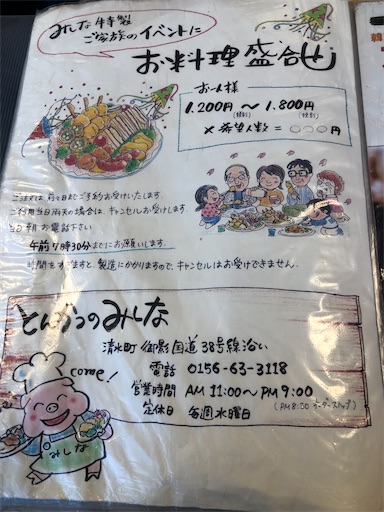 みしな特製
ご家族のイベントに
お料理盛合せ
お一人様
1.200円 ～ 1.800円
(税別) (税別)
× 希望人数 = ○○○円
ご注文は 前々日までご予約お受けいたします
ご利用当日雨天の場合は、キャンセルお受けします
当日朝 お電話下さい
午前7時30分までにお願いします。
時間をすぎますと、製造にかかりますので、キャンセルはお受けできません。
とんかつのみしな
清水町 御影国道38号線沿い
電話 0156-63-3118
come!
営業時間 AM 11:00～PM 9:00
(PM 8:00 オーダーストップ)
定休日 毎週水曜日
みしな
韓